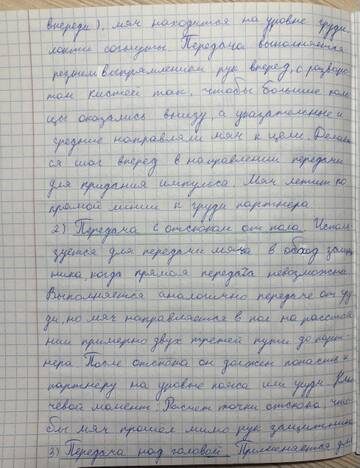 впереди), мяч находится на уровне груди,
локти согнуты. Передача выполняется
резким выпрямлением рук вперед, с разворо-
том кистей так, чтобы большие паль-
цы оказались внизу, а указательные и
средние направляли мяч к цели. Делает-
ся шаг вперед в направлении передачи
для придания импульса. Мяч летит по
прямой линии к груди партнера.
2) Передача с отскоком от пола. Исполь-
зуется для передачи мяча в обход защит-
ника, когда прямая передача невозможна.
Выполняется аналогично передаче от гру-
ди, но мяч направляется в пол на расстоя-
нии примерно двух третей пути до парт-
нера. После отскока он должен попасть к
партнеру на уровне пояса или груди. Клю-
чевой момент: Расчет точки отскока, что-
бы мяч прошел мимо рук защитника.
3) Передача над головой. Применяется для